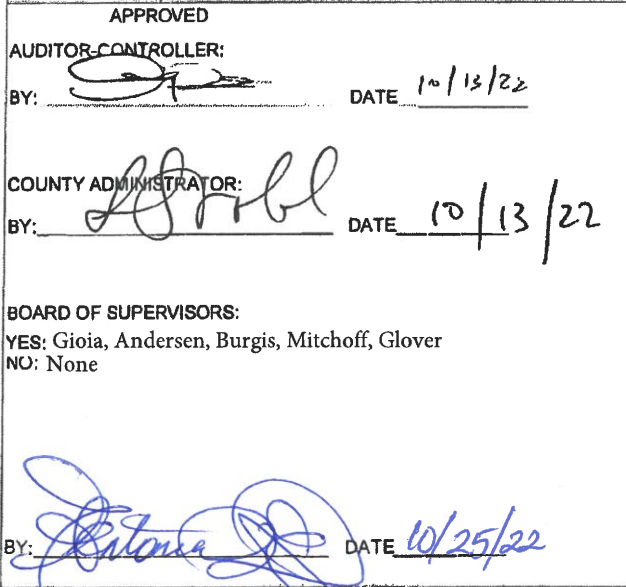 APPROVED
AUDITOR-CONTROLLER:
BY: DATE 10/13/22
COUNTY ADMINISTRATOR:
BY: DATE 10/13/22
BOARD OF SUPERVISORS:
YES: Gioia, Andersen, Burgis, Mitchoff, Glover
NO: None
BY: Antonia DATE 10/25/22